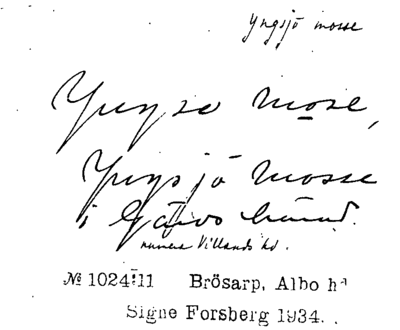 Yngsjö mosse
Yngso mose,
Yngsjö mosse
i Gärds härad.
numera Villands hd.
№ 1024:11 Brösarp, Albo hd
Signe Forsberg 1934.